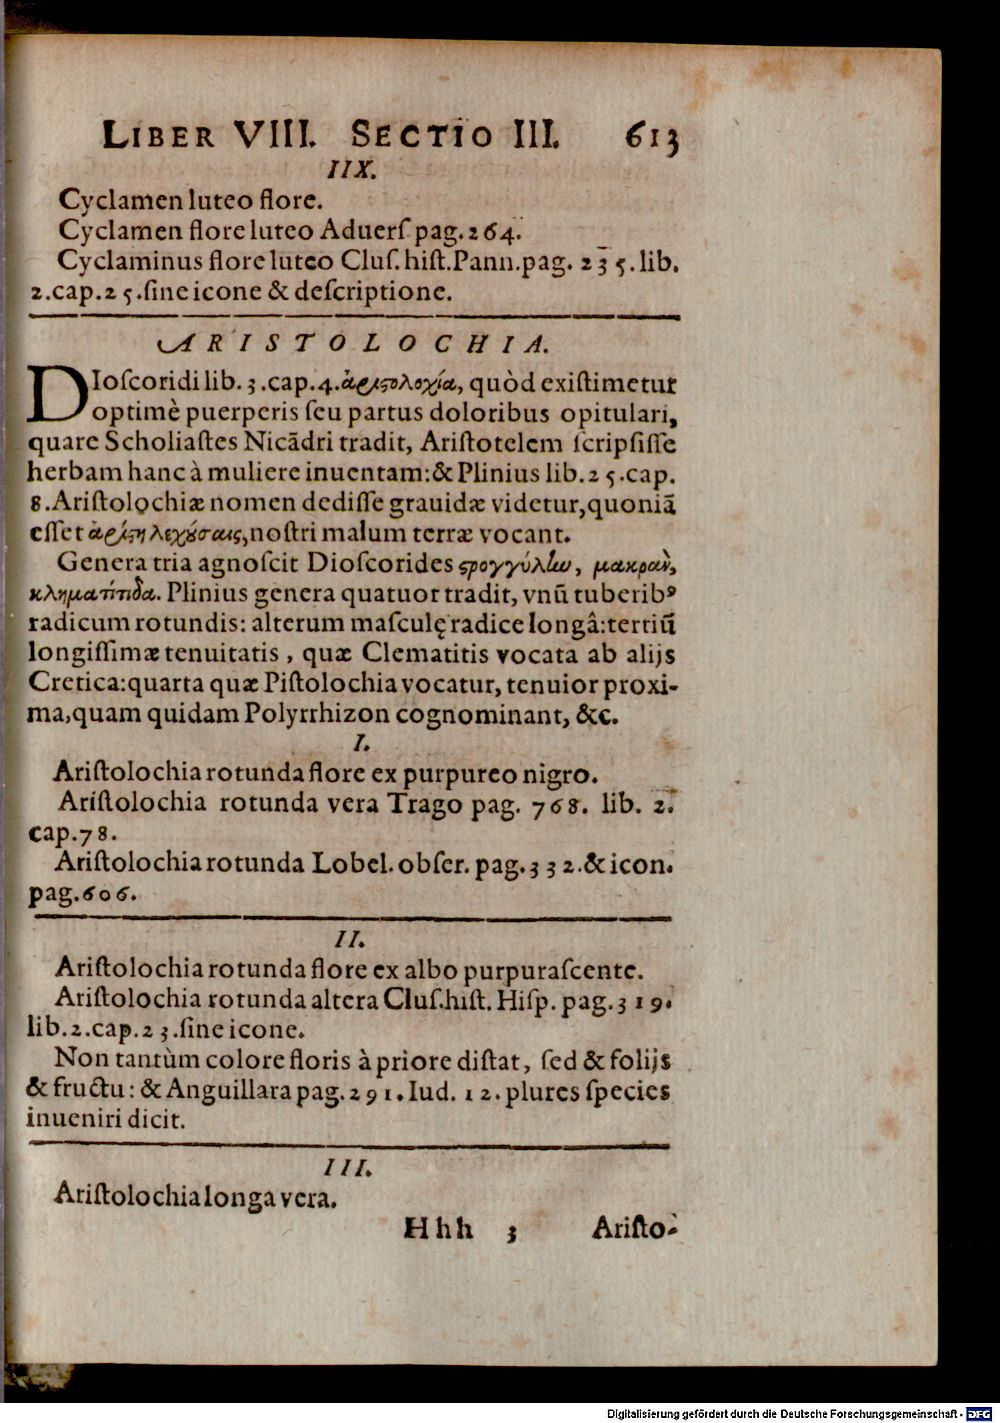 LIBER VIII. SECTIO III. 613
IIX.
Cyclamen luteo flore.
Cyclamen flore luteo Aduerſ pag. 264.
Cyclaminus flore luteo Cluſ. hiſt. Pann. pag. 235. lib.
2. cap. 25. ſine icone & deſcriptione.
ARISTOLOCHIA.
DIoſcoridi lib. 3. cap. 4. ἀριϛολοχία, quòd exiſtimetur
optimè puerperis ſeu partus doloribus opitulari,
quare Scholiaſtes Nicādri tradit, Ariſtotelem ſcripſiſſe
herbam hanc à muliere inuentam: & Plinius lib. 25. cap.
8. Ariſtolochiæ nomen dediſſe grauidæ videtur, quoniā
eſſet ἀρίϛη λεχούσαις, noſtri malum terræ vocant.
Genera tria agnoſcit Dioſcorides ϛρογγύλω, μακρὰν,
κληματίτιδα. Plinius genera quatuor tradit, vnū tuberibꝰ
radicum rotundis: alterum maſculę radice longâ: tertiū
longiſſimæ tenuitatis, quæ Clematitis vocata ab alijs
Cretica: quarta quæ Piſtolochia vocatur, tenuior proxi-
ma, quam quidam Polyrrhizon cognominant, &c.
I.
Ariſtolochia rotunda flore ex purpureo nigro.
Ariſtolochia rotunda vera Trago pag. 768. lib. 2.
cap. 78.
Ariſtolochia rotunda Lobel. obſer. pag. 332. & icon.
pag. 606.
II.
Ariſtolochia rotunda flore ex albo purpuraſcente.
Ariſtolochia rotunda altera Cluſ. hiſt. Hiſp. pag. 319.
lib. 2. cap. 23. ſine icone.
Non tantùm colore floris à priore diſtat, ſed & folijs
& fructu: & Anguillara pag. 291. Iud. 12. plures ſpecies
inueniri dicit.
III.
Ariſtolochia longa vera.
Hhh 3 Ariſto-
Digitalisierung gefördert durch die Deutsche Forschungsgemeinschaft - DFG